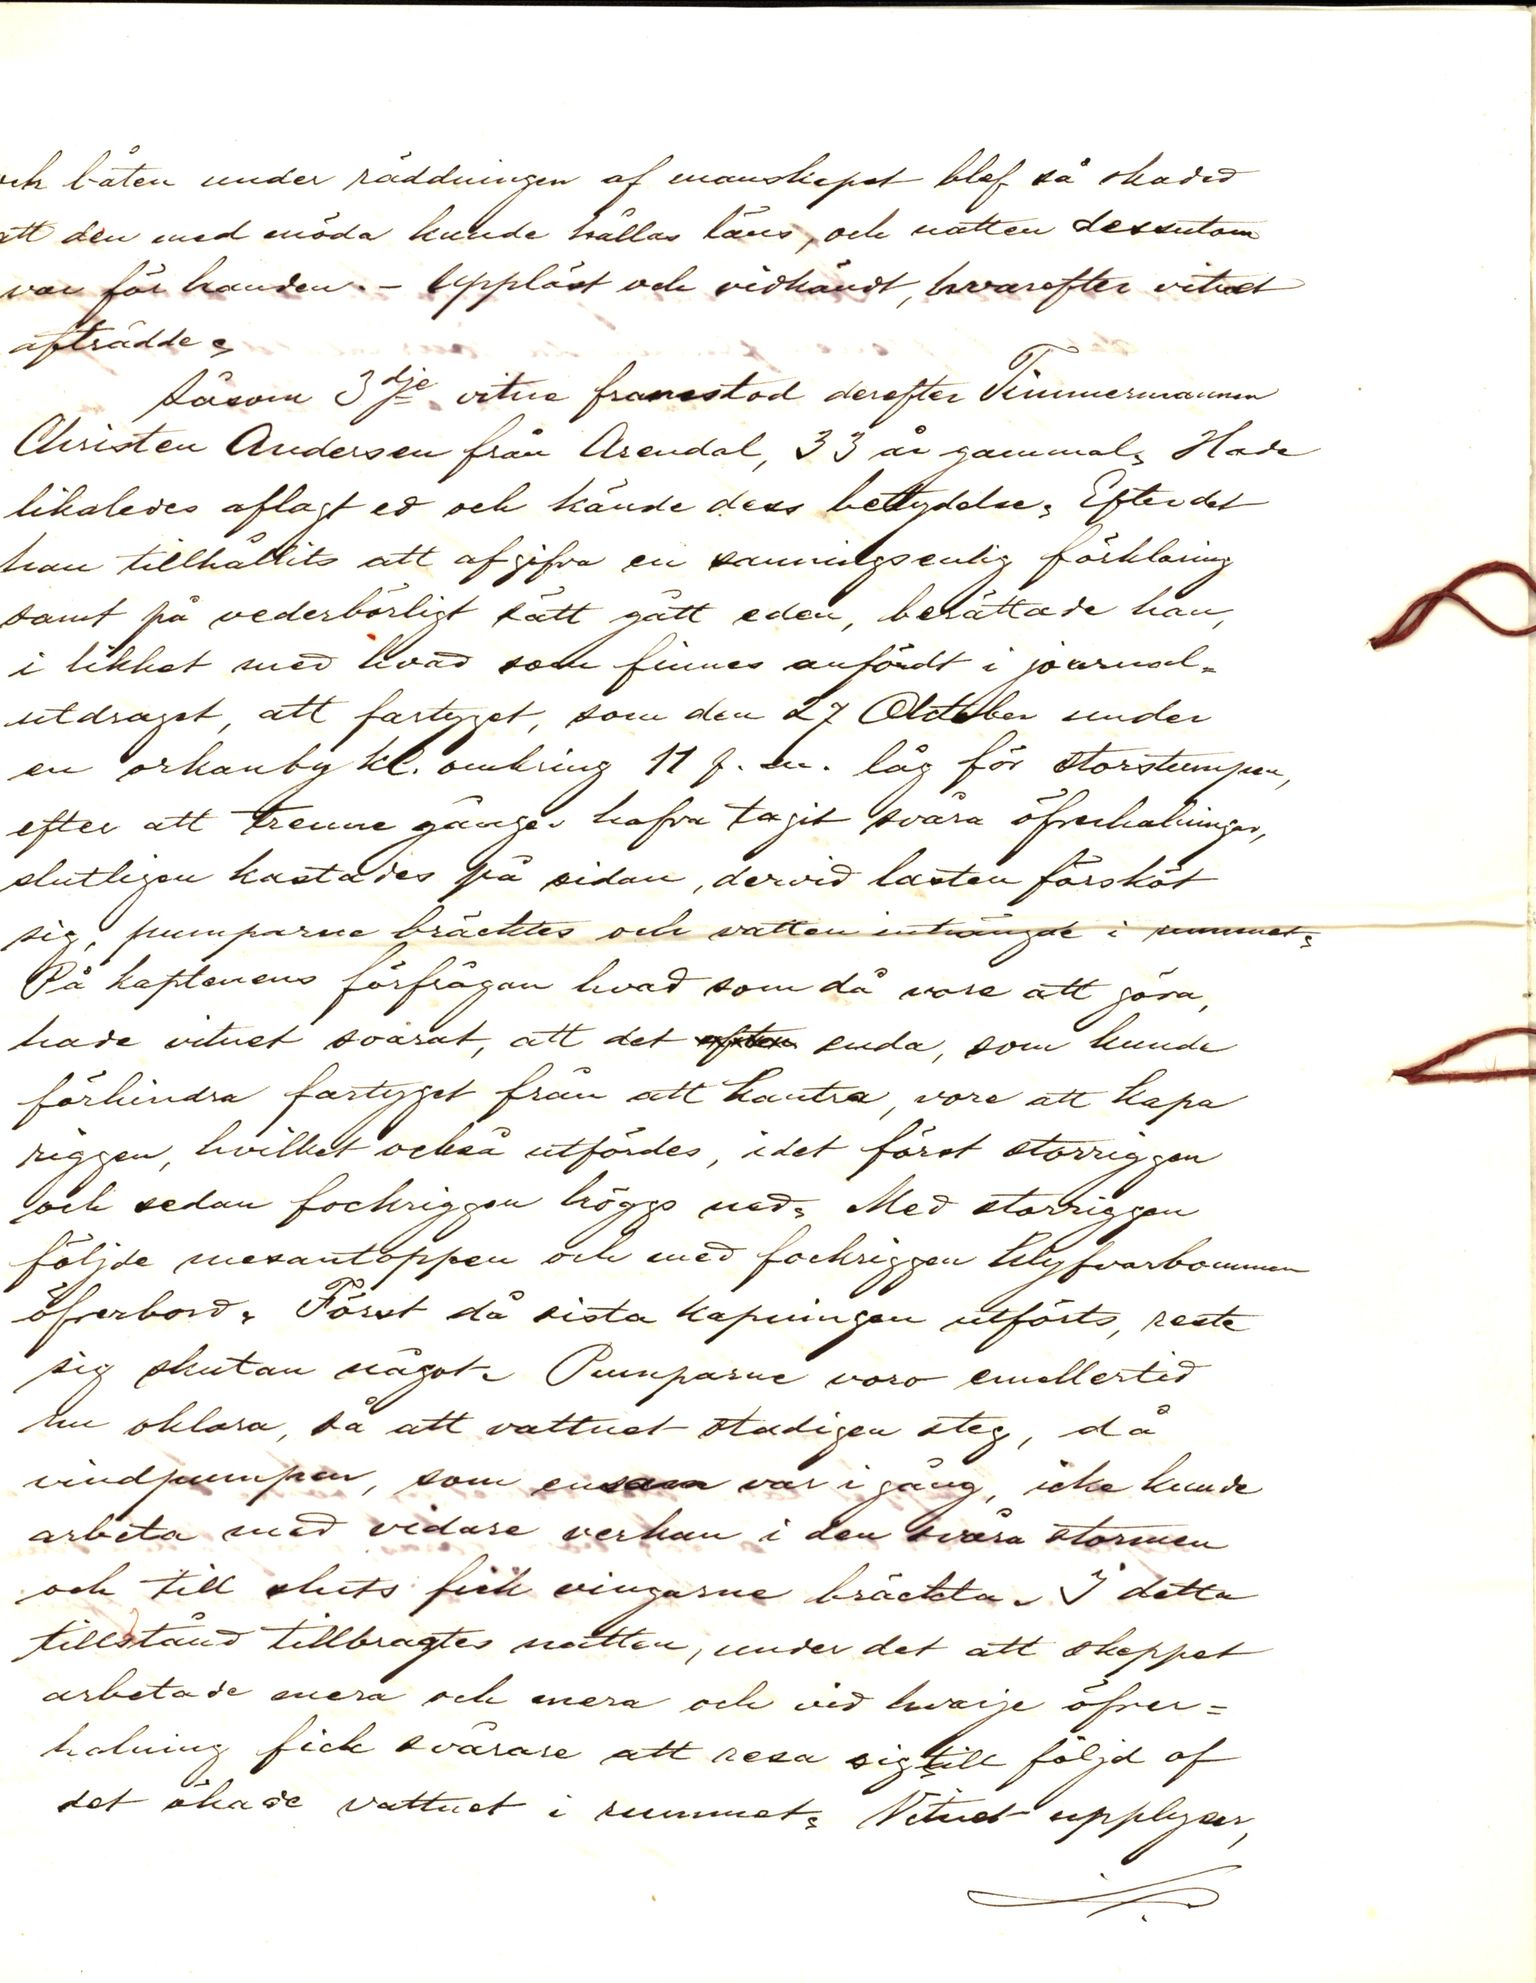 och båten under räddningen af manskapet blef så skadad
att den med möda kunde hållas läns, och natten dessutom
var för handen. - Uppläst och vidkändt, hvarefter vitnet
afträdde.
Såsom 3dje vitne framstod derefter Timmermannen
Christen Andersen från Arendal, 33 år gammal. Hade
likaledes aflagt ed och kände dess bettydelse. Efter det
han tillhållits att afgifva en sanningsenlig förklaring
samt på vederbörligt sätt gått eden, berättade han,
i likhet med hvad som finnes anfördt i journal=
utdraget, att fartyget, som den 27 Oktober under
en orkanby kl. omkring 11 f. m. låg för storstumpen,
efter att trenne gånger hafva tagit svåra öfverhalningar,
slutligen kastades på sidan, dervid lasten försköt
sig, pumparne bräcktes och vatten inträngde i rummet.
På kaptenens förfrågan hvad som då vore att göra,
hade vitnet svarat, att det enda, som kunde
förhindra fartyget från att kantra, vore att kapa
riggen, hvilket också utfördes, i det först storriggen
och sedan fockriggen höggs ned. Med storriggen
följde mesantoppen och med fockriggen klyfvarbommen
öfverbord. Först då sista kapningen utförts, reste
sig skutan något. Pumparne voro emellertid
nu oklara, så att vattnet stadigen steg, då
vindpumpen, som ensam var i gång, icke kunde
arbeta med vidare verkan i den svåra stormen
och till sluts fick vingarne bräckta. I detta
tillstånd tillbragtes natten, under det att skeppet
arbetade mera och mera och vid hvarje öfver=
halning fick svårare att resa sig till följd af
det ökade vattnet i rummet. Vitnet upplyser,